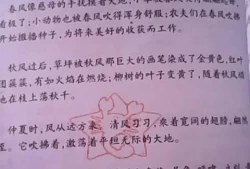 春风像慈母的手抚摸着大地,
着枝了;小动物也被春风吹得浑身舒服;农夫们在春风吹
开始撒播种子,为将来美好的收获而工作。
秋风过后,草坪被秋风那巨大的画笔染成了金黄色,红叶
团簇簇,有如火焰在燃烧;柳树的叶子变黄了,随着秋风
也在枝上荡秋千。
仲夏时,风从远方来,清风习习,乘着宽阔的翅膀,翩然
至。它吹拂着,激荡着平坦无际的大地。